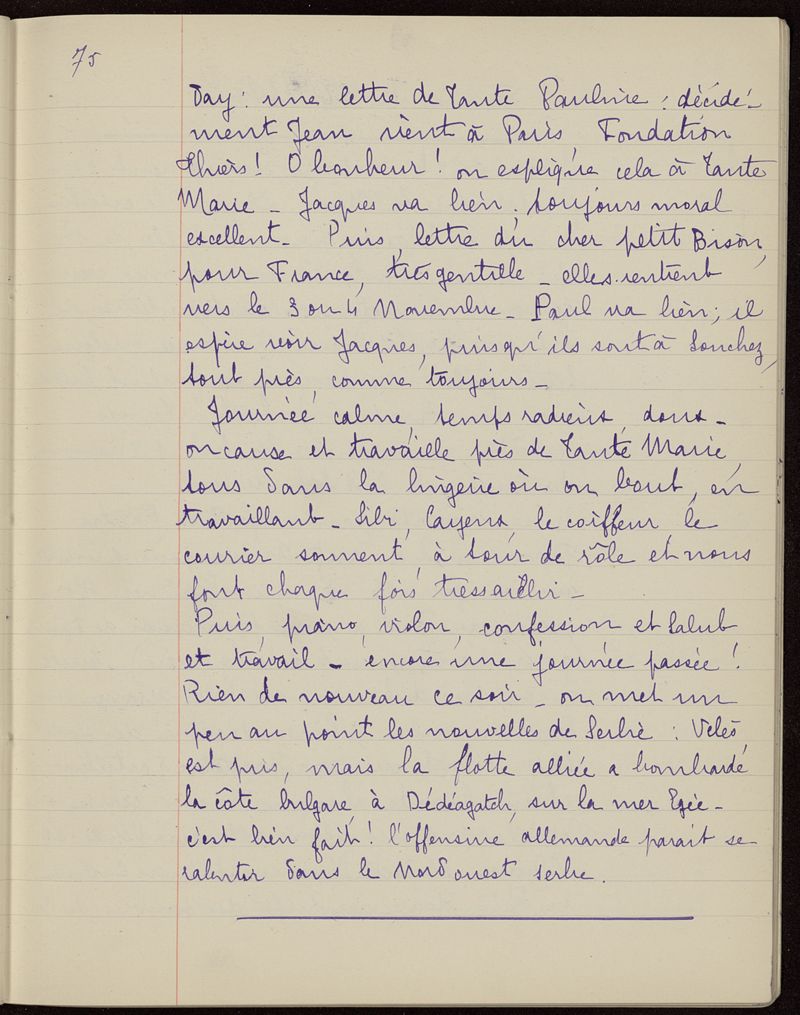 75
Day : une lettre de Tante Pauline : décidé-
ment Jean vient à Paris, Fondation
Thiers ! O bonheur ! on explique cela à Tante
Marie _ Jacques va bien ; toujours moral
excellent _ Puis, lettre du cher petit Bison,
pour France, très gentille _ elles rentrent
vers le 3 ou 4 Novembre _ Paul va bien ; il
espère voir Jacques, puisqu'ils sont à Souchez,
tout près, comme toujours _
Journée calme, temps radieux, doux _
on cause et travaille près de Tante Marie,
tous dans la lingerie où on bout, en
travaillant _ Sibi, Cayeux, le coiffeur le
courier sonnent, à tour de rôle et nous
font chaque fois tressaillir _
Puis, piano, violon, confession et Salut
et travail _ encore une journée passée !
Rien de nouveau ce soir _ on met un
peu au point les nouvelles de Serbie : Velès,
est pris, mais la flotte alliée a bombardé
la côte bulgare, à Dédéagatch, sur la mer Egée _
c'est bien fait ! l'offensive allemande parait se
ralentir dans le Nord ouest serbe.